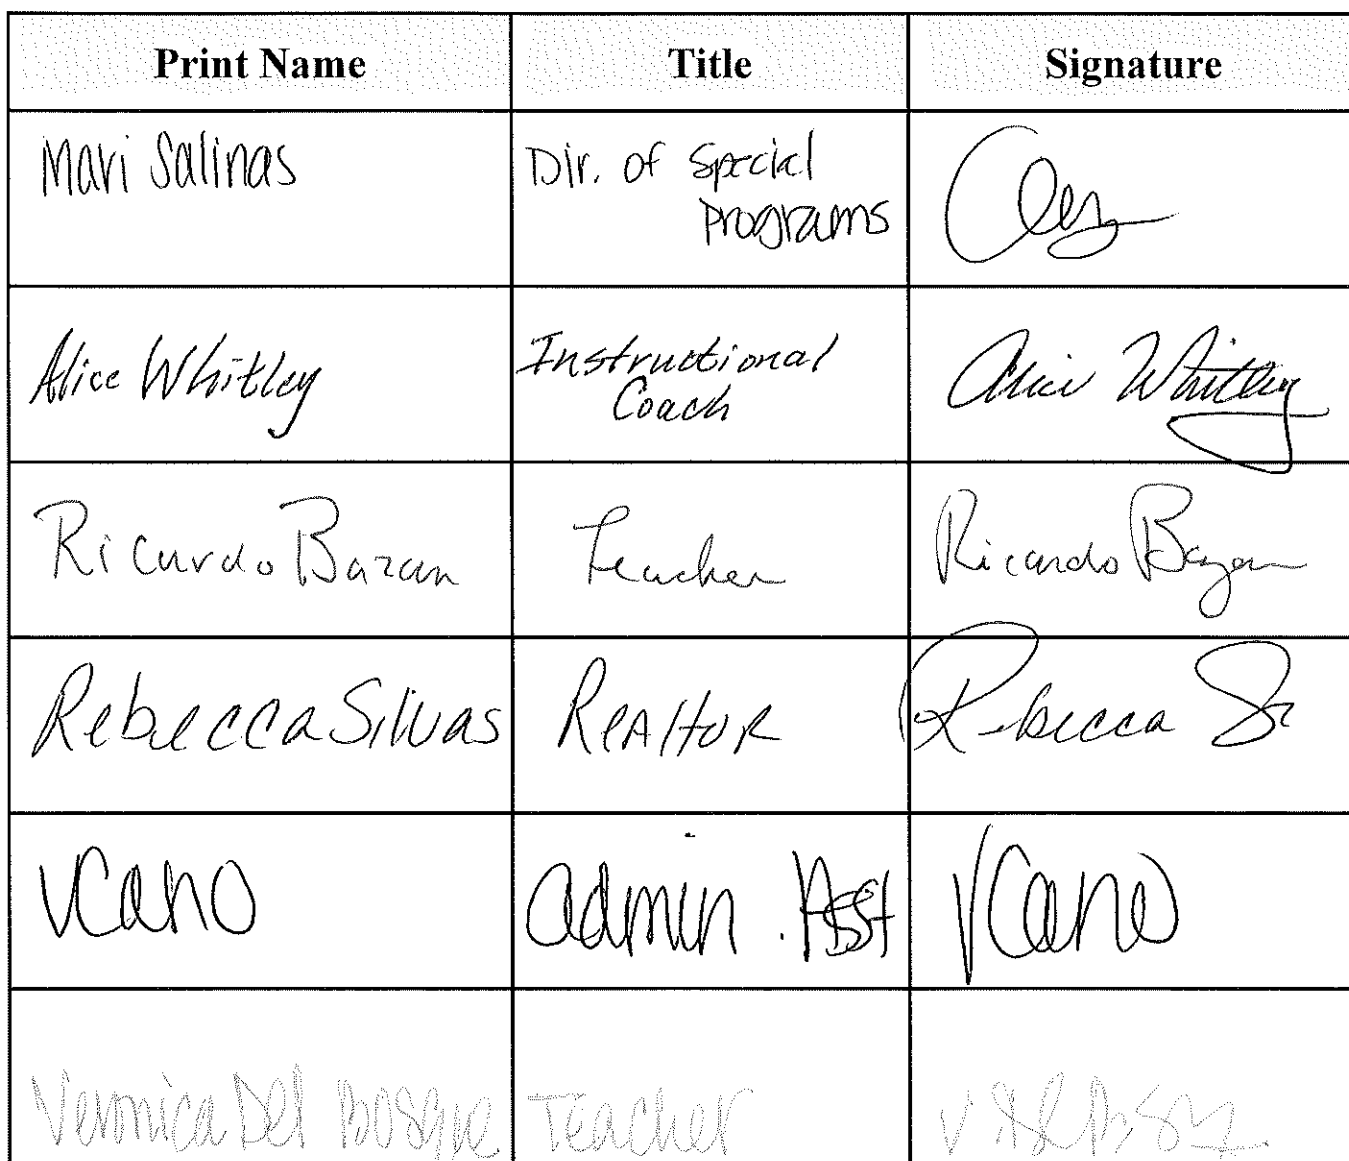 Print Name Title Signature
Mari Salinas Dir. of Special
Programs
Alice Whitley Instructional Alice Whitley
Coach
Ricardo Bazan Teacher Ricardo Bazan
Rebecca Silvas Realtor Rebecca
VCano admin. Asst VCano
Veronica Del Bosque Teacher